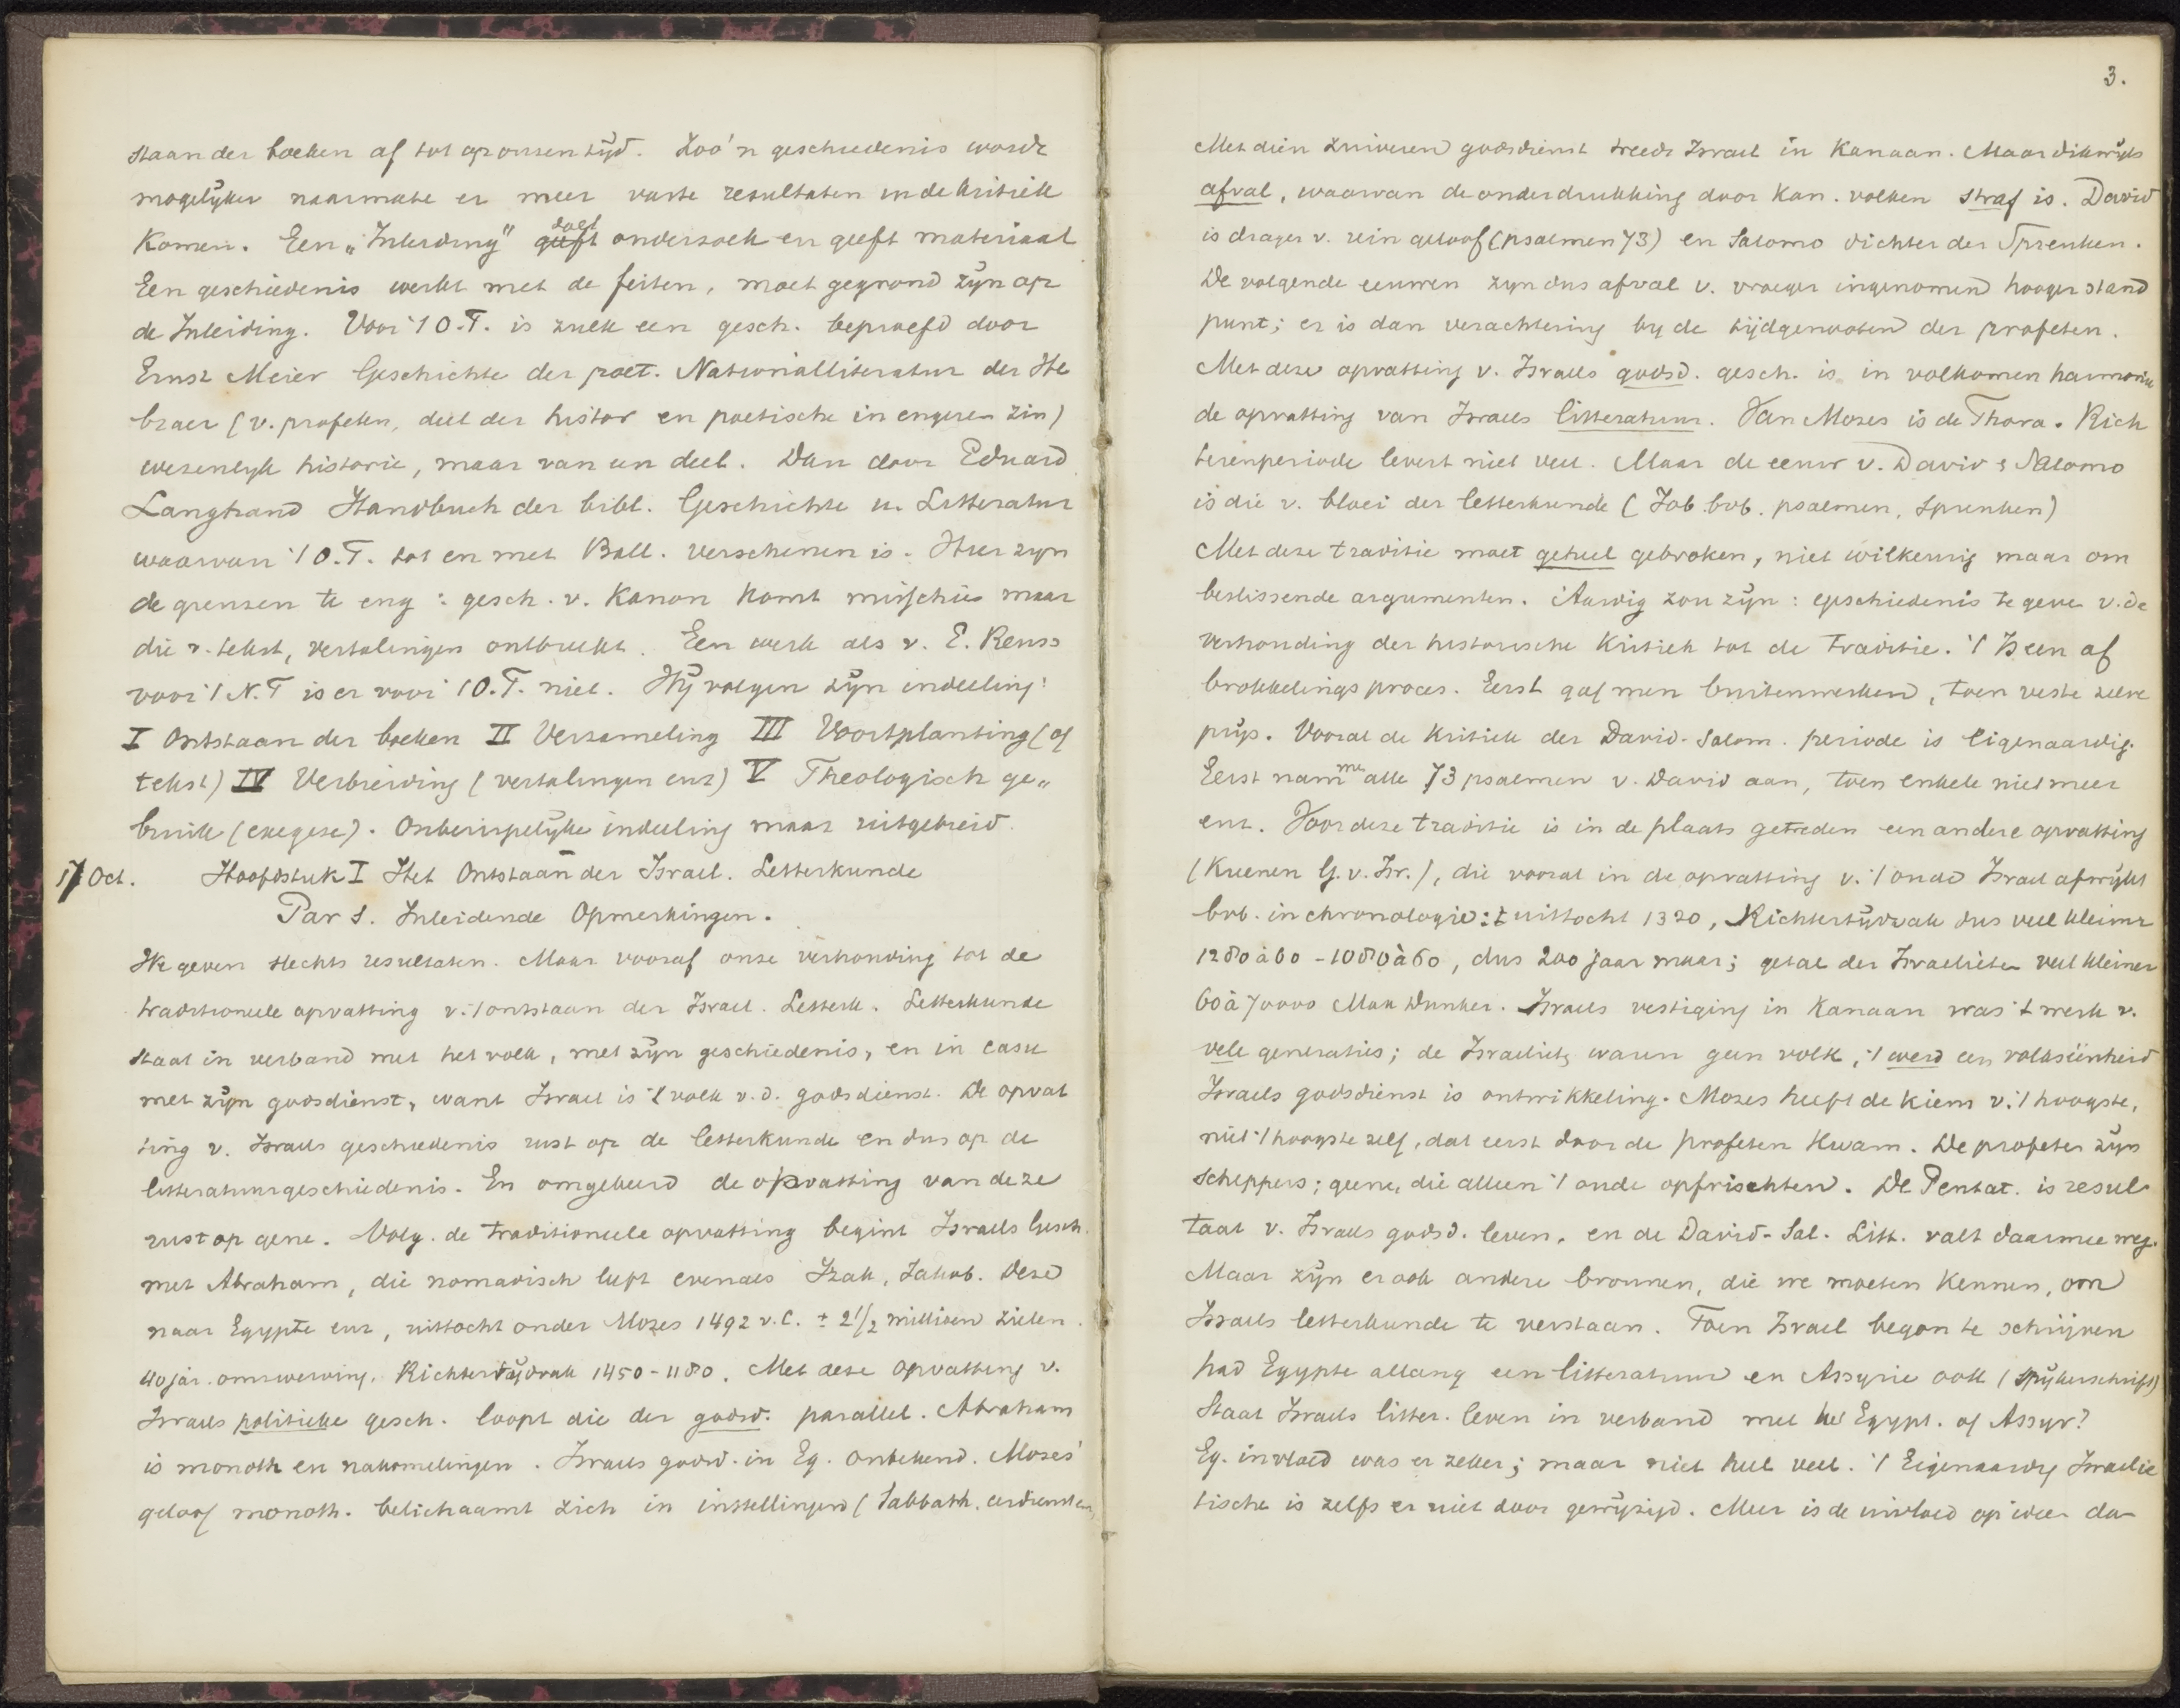 staan der boeken af tot op onzen tijd. Zoo'n geschiedenis wordt
mogelijker naarmate er meer vaste resultaten in de kritiek
komen. Een „Inleiding" geeft doet onderzoek en geeft materiaal
Een geschiedenis werkt met de feiten, moet gegrond zijn op
de Inleiding. Voor 't O.T. is zulk een gesch. beproefd door
Ernst Meier Geschichte der poet. Nationalliteratur der He
braer (v. profeten, deel der histor en poetische in engeren zin)
wezenlyk historie, maar van een deel. Dan door Eduard
Langhand Handbuch der bibl. Geschichte u. Litteratur
waarvan 't O.T. tot en met Ball. verschenen is. Hier zyn
de grenzen te eng : gesch. v. Kanon komt misschien maar
die v. tekst, vertalingen ontbreekt. Een werk als v. E. Reuss
voor 't N.T is er voor 't O.T. niet. Wij volgen zijn indeeling:
I Ontstaan der boeken II Verzameling III Voortplanting (of
tekst) IV Verbreiding (vertalingen enz) V Theologisch ge„
bruik (exegese). Onberispelijke indeeling maar uitgebreid.
17 Oct. Hoofdstuk I Het Ontstaan der Israel. Letterkunde
Par 1. Inleidende Opmerkingen.
We geven slechts resultaten. Maar vooraf onze verhouding tot de
traditioneele opvatting v. 't ontstaan der Israel. Letterk. Letterkunde
staat in verband met het volk, met zijn geschiedenis, en in casu
met zijn godsdienst, want Israel is 't volk v.d. godsdienst. De opvat
ting v. Israels geschiedenis rust op de letterkunde en dus op de
litteratuurgeschiedenis. En omgekeerd de opvatting van deze
rust op gene. Volg. de traditioneele opvatting begint Israels Gesch.
met Abraham, die nomadisch leeft evenals Izak, Jakob. Deze
naar Egypte enz, uittocht onder Mozes 1492 v.C. ± 2 1/2 millioen zielen.
40 jar. omzwerving. Richtertijdvak 1450-1180. Met deze opvatting v.
Israels politieke gesch. loopt die der godsd. parallel. Abraham
is monoth en nakomelingen. Israels godsd. in Eg. onbekend. Mozes'
geloof monoth. belichaamt zich in instellingen (Sabbath, eerdienst enz)
3.
Met dien zuiveren godsdienst treedt Israel in Kanaan. Maar dikwijls
afval, waarvan de onderdrukking door Kan. volken straf is. David
is drager v. rein geloof (psalmen 73) en Salomo dichter der Spreuken.
De volgende eeuwen zyn dus afval v. vroeger ingenomen hooger stand
punt; er is dan verachtering by de tijdgenooten der profeten.
Met deze opvatting v. Israels godsd. gesch. is in volkomen harmonie
de opvatting van Israels litteratuur. Van Mozes is de Thora. Rich
terenperiode levert niet veel. Maar de eeuw v. David & Salomo
is die v. bloei der letterkunde (Job bvb. psalmen, Spreuken)
Met deze traditie moet geheel gebroken, niet wilkeurig maar om
beslissende argumenten. Aardig zou zijn: geschiedenis te geven v. de
verhouding der historische kritiek tot de traditie. 't Is een af
brokkelingsproces. Eerst gaf men buitenwerken, toen veste zelve
prijs. Vooral de kritiek der David-Salom. periode is eigenaardig.
Eerst nam men alle 73 psalmen v. David aan, toen enkele niet meer
enz. Voor deze traditie is in de plaats getreden een andere opvatting
(Kuenen G.v.Isr.), die vooral in de opvatting v. 't oude Israel afwijkt
bvb. in chronologie: ± uittocht 1320, Richtertijdvak dus veel kleiner
1280 à 60 - 1080 à 60, dus 200 jaar maar; getal der Israelieten veel kleiner
60 à 70000 Max Dunker. Israels vestiging in Kanaan was 't werk v.
vele generaties; de Israeliets waren geen volk, 't werd een volkseenheid
Israels godsdienst is ontwikkeling. Mozes heeft de kiem v. 't hoogste,
niet 't hoogste zelf, dat eerst door de profeten kwam. De profeten zijn
scheppers; geene, die alleen 't oude opfrischten. De Pentat. is resul
taat v. Israels godsd. leven, en de David-Sal. Litt. valt daarmee weg.
Maar zijn er ook andere bronnen, die we moeten kennen, om
Israels letterkunde te verstaan. Toen Israel begon te schrijven
had Egypte allang een litteratuur en Assyrie ook (Spijkerschrift)
Staat Israels litter. leven in verband met het Egypt. of Assyr?
Eg. invloed was er zeker; maar niet heel veel. 't Eigenaardig Israelie
tische is zelfs er niet door gewijzigd. Meer is de invloed op ideen da-